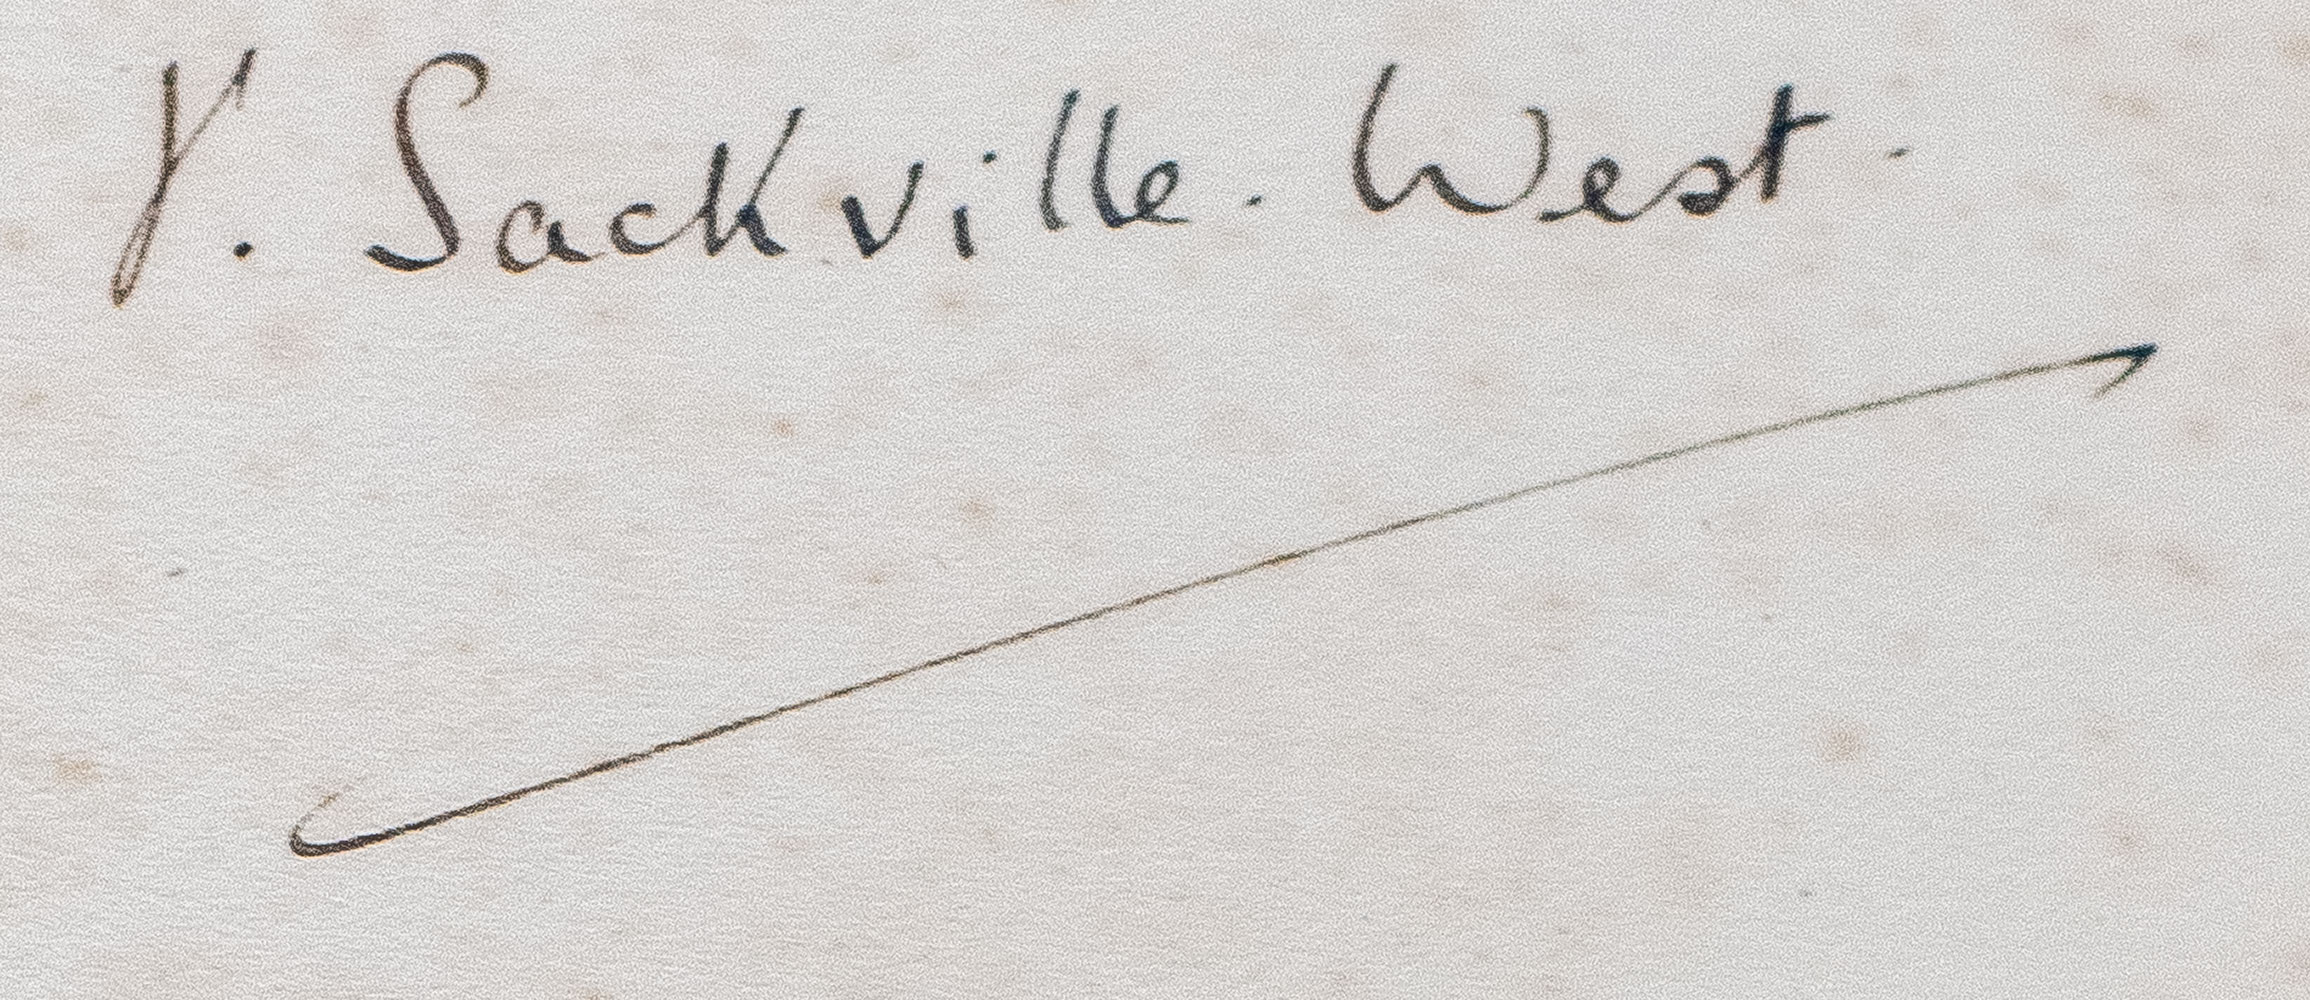 V. Sackville. West.